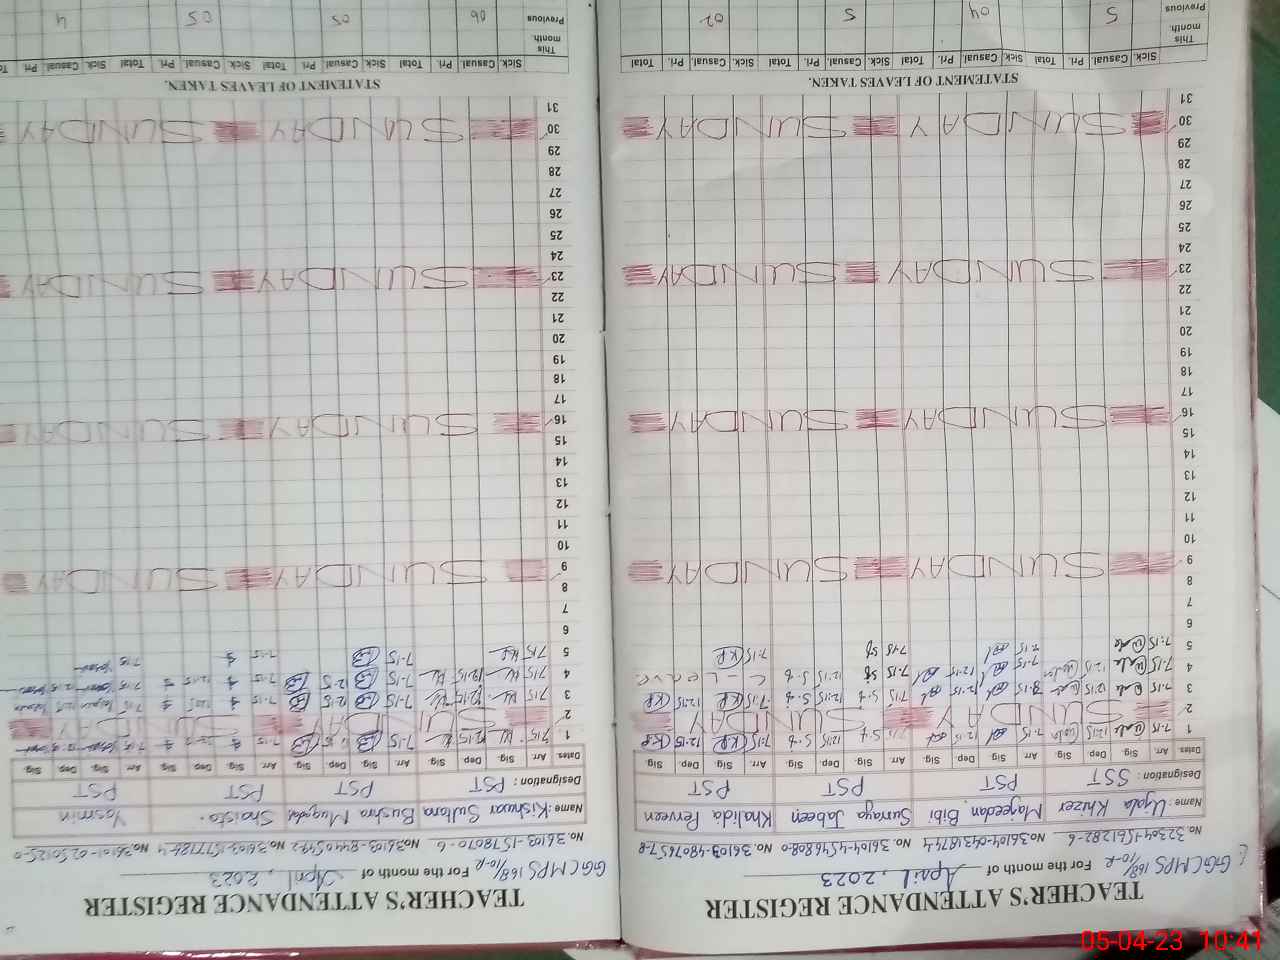 TEACHER'S ATTENDANCE REGISTER
GGCMPS 168/10-R For the month of April, 2023
No. 32304-1561282-6 No. 36104-0431674-4 No. 36104-4546808-0 No. 36103-4807657-8
Name: Ujala Khizer Majeedan Bibi Sumaya Jabeen Khalida Perveen
Designation: SST PST PST PST
Dates Arr. Sig. Dep. Sig. Arr. Sig. Dep. Sig. Arr. Sig. Dep. Sig. Arr. Sig. Dep. Sig.
1 7:15 12:15 7:15 12:15 7:15 12:15 7:15 KP 12:15 KP
2 SUNDAY SUNDAY
3 7:15 12:15 7:15 12:15 7:15 12:15 7:15 KP 12:15 KP
4 7:15 12:15 7:15 12:15 7:15 12:15 C-Leave
5 7:15 7:15 7:15 7:15 KP
6
7
8
9 SUNDAY SUNDAY
10
11
12
13
14
15
16 SUNDAY SUNDAY
17
18
19
20
21
22
23 SUNDAY SUNDAY
24
25
26
27
28
29
30 SUNDAY SUNDAY
31
STATEMENT OF LEAVES TAKEN.
Sick. Casual. Pri. Total Sick. Casual. Pri. Total Sick. Casual. Pri. Total Sick. Casual. Pri. Total
This month.
Previous 5 04 5 02
TEACHER'S ATTENDANCE REGISTER
GGCMPS 168/10-R For the month of April, 2023
No. 36103-1578070-6 No. 36103-8440549-2 No. 36103-1577786-4 No. 36101-0250125-0
Name: Kishwar Sultana Bushra Majeed Shaista. Yasmin
Designation: PST PST PST PST
Dates Arr. Sig. Dep. Sig. Arr. Sig. Dep. Sig. Arr. Sig. Dep. Sig. Arr. Sig. Dep. Sig.
1 7:15 12:15 7:15 12:15 7:15 12:15 7:15 12:15
2 SUNDAY SUNDAY
3 7:15 12:15 7:15 12:15 7:15 12:15 7:15 12:15
4 7:15 12:15 7:15 12:15 7:15 12:15 7:15 12:15
5 7:15 7:15 7:15 7:15
6
7
8
9 SUNDAY SUNDAY
10
11
12
13
14
15
16 SUNDAY SUNDAY
17
18
19
20
21
22
23 SUNDAY SUNDAY
24
25
26
27
28
29
30 SUNDAY SUNDAY
31
STATEMENT OF LEAVES TAKEN.
Sick. Casual. Pri. Total Sick. Casual. Pri. Total Sick. Casual. Pri. Total Sick. Casual. Pri.
This month.
Previous 06 05 05 4
05-04-23 10:41